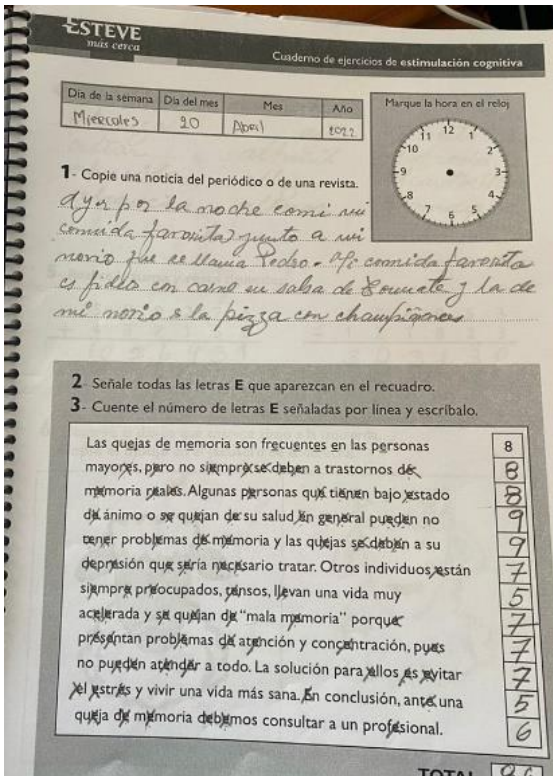 ESTEVE
más cerca
Cuaderno de ejercicios de estimulación cognitiva
Día de la semana Día del mes Mes Año
Miercoles 20 Abril 2022
Marque la hora en el reloj
12 1 2 3 4 5 6 7 8 9 10 11
1- Copie una noticia del periódico o de una revista.
Ayer por la noche comi mi
comida favorita) junto a mi
novio que se llama Pedro. Mi comida favorita
es fideo con carne en salsa de tomate y la de
mi novio s la pizza con champiñones
2- Señale todas las letras E que aparezcan en el recuadro.
3- Cuente el número de letras E señaladas por línea y escríbalo.
Las quejas de memoria son frecuentes en las personas 8
mayores, pero no siempre se deben a trastornos de 8
memoria reales. Algunas personas que tienen bajo estado 8
de ánimo o se quejan de su salud en general pueden no 9
tener problemas de memoria y las quejas se deban a su 9
depresión que sería necesario tratar. Otros individuos están 7
siempre preocupados, tensos, llevan una vida muy 5
acelerada y se quejan de "mala memoria" porque 7
presentan problemas de atención y concentración, pues 7
no pueden atender a todo. La solución para ellos es evitar 7
el estrés y vivir una vida más sana. En conclusión, ante una 5
queja de memoria debemos consultar a un profesional. 6
TOTAL